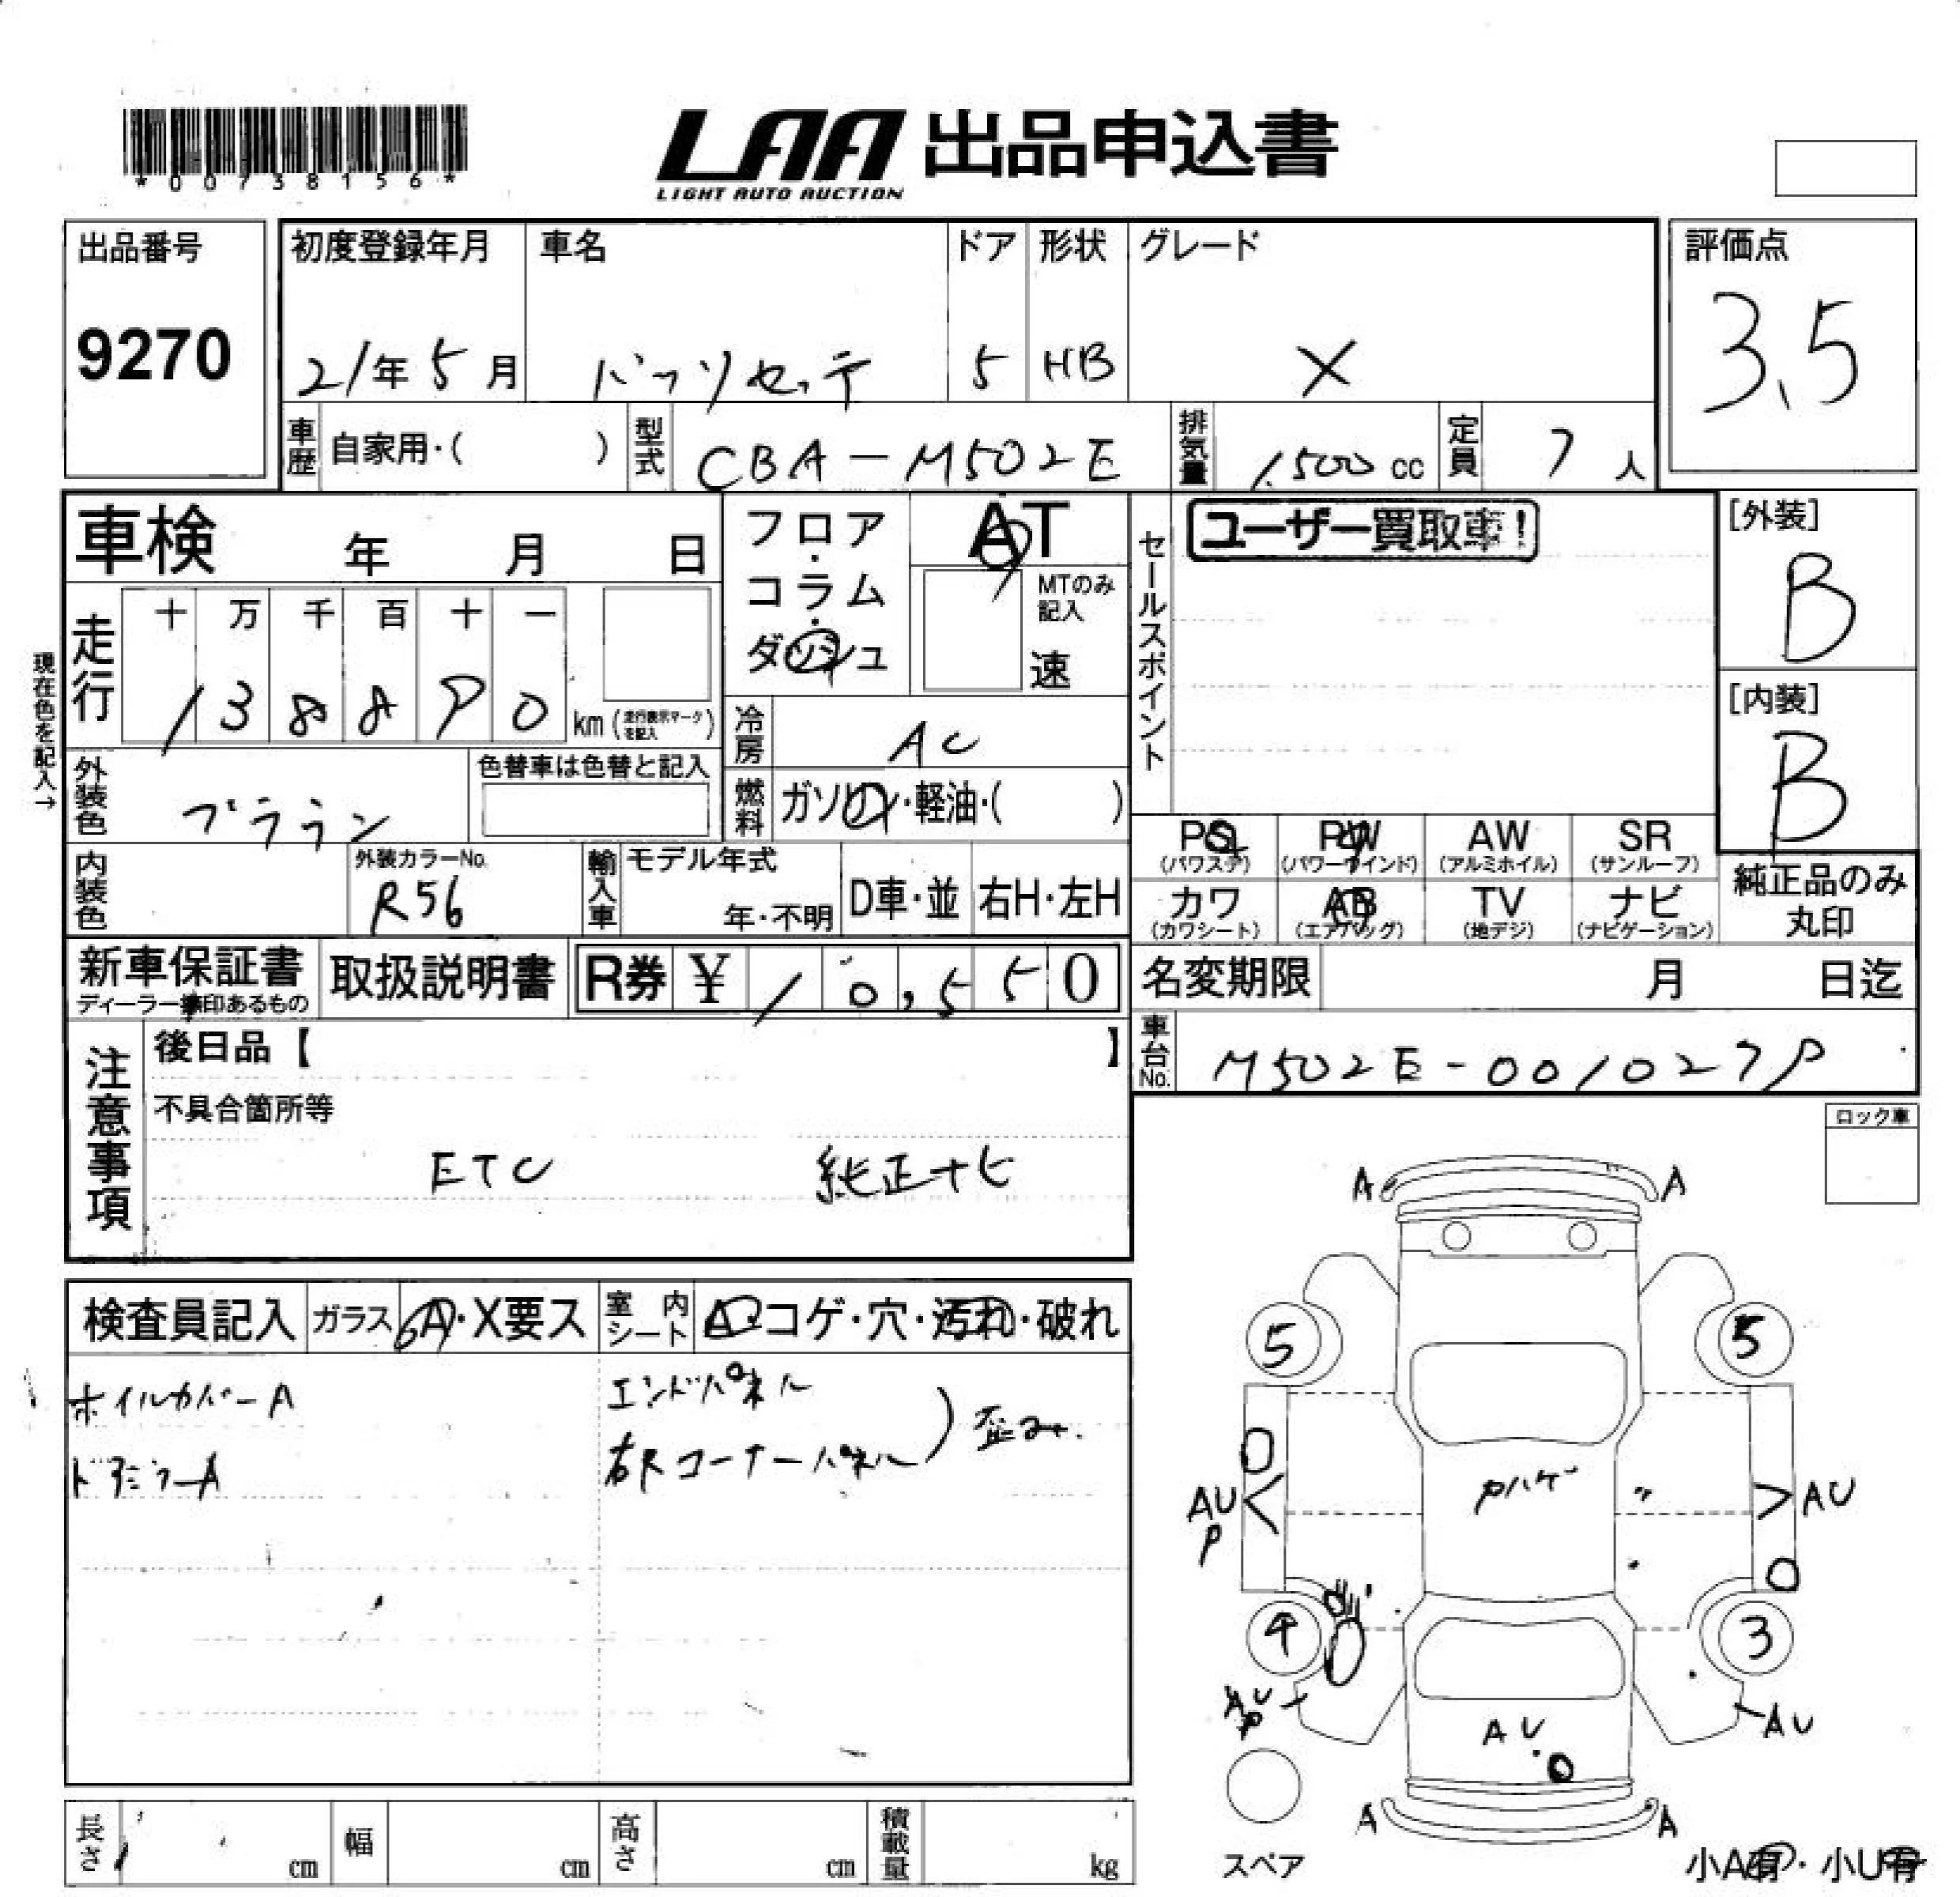 *00738156*
LAA 出品申込書
LIGHT AUTO AUCTION
出品番号
9270
初度登録年月
21年5月
車名
パッソセッテ
ドア
5
形状
HB
グレード
X
評価点
3.5
車歴 自家用・( )
型式 CBA-M502E
排気量 1,500cc
定員 7人
車検 年 月 日
現在色を記入→
走行
十 万 千 百 十 一
1 3 8 8 9 0 km (走行表示マークを記入)
外装色 ブラウン
色替車は色替と記入
内装色
外装カラーNo.
R56
輸入車 モデル年式
年・不明
D車・並
右H・左H
フロア・コラム・ダッシュ
AT
MTのみ記入
速
冷房 AC
燃料 ガソリン・軽油・( )
セールスポイント
ユーザー買取車!
[外装]
B
[内装]
B
PS
(パワステ)
PW
(パワーウインド)
AW
(アルミホイル)
SR
(サンルーフ)
カワ
(カワシート)
AB
(エアバッグ)
TV
(地デジ)
ナビ
(ナビゲーション)
純正品のみ
丸印
新車保証書
ディーラー捺印あるもの
取扱説明書
R券 ¥ 10,550
名変期限 月 日迄
車台No. M502E-0010279
注意事項
後日品【 】
不具合箇所等
ETC 純正ナビ
ロック車
検査員記入
ガラス A・X要ス
室内シート A・コゲ・穴・汚れ・破れ
ホイルカバーA
ドアミラーA
エンドパネル
右Rコーナーパネル ) 歪み.
A A
5 5
AU
P
Pハゲ
〃
AU
4 3
AU
P
AU
AU
A A
スペア
小A有・小U有
長さ cm
幅 cm
高さ cm
積載量 kg